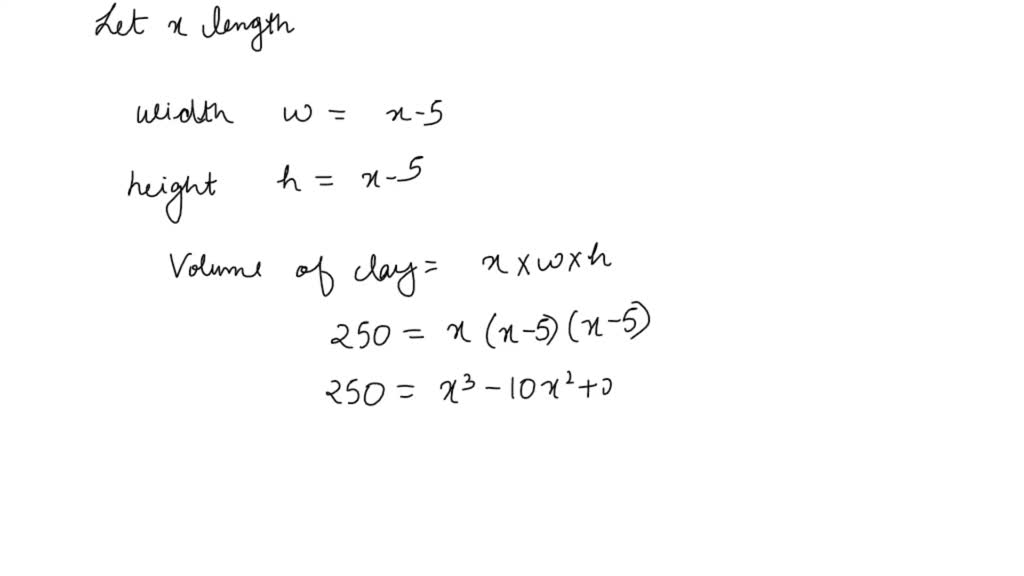 Let x length
width w = x-5
height h = x-5
Volume of clay = x × w × h
250 = x (x-5) (x-5)
250 = x³ - 10x² +